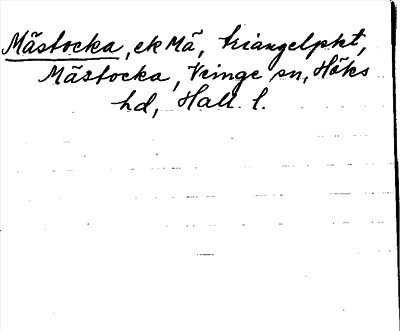 Mästocka, ek Mä, triangelpkt,
Mästocka, Veinge sn, Höks
hd, Hall. l.